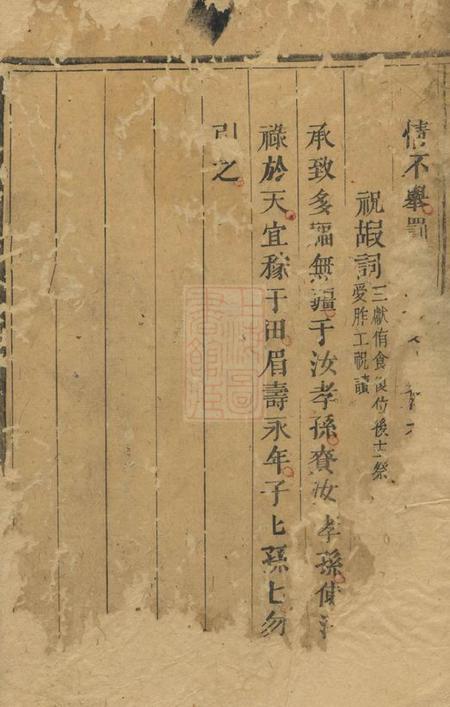 情不舉罰
祝嘏詞
三獻侑食復位後主祭
受胙工祝讀
承致多福無疆于汝孝孫賚汝孝孫使
祿於天宜稼于田眉壽永年子匕孫匕勿
引之